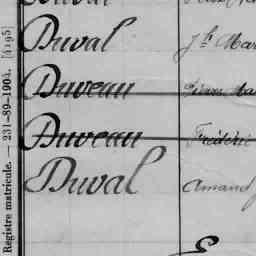 Duval Jh Mar
Duveau Pierre Ma
Duveau Frédéric
Duval Amand
E
Registre matricule. — 231-89-1904. [4195]